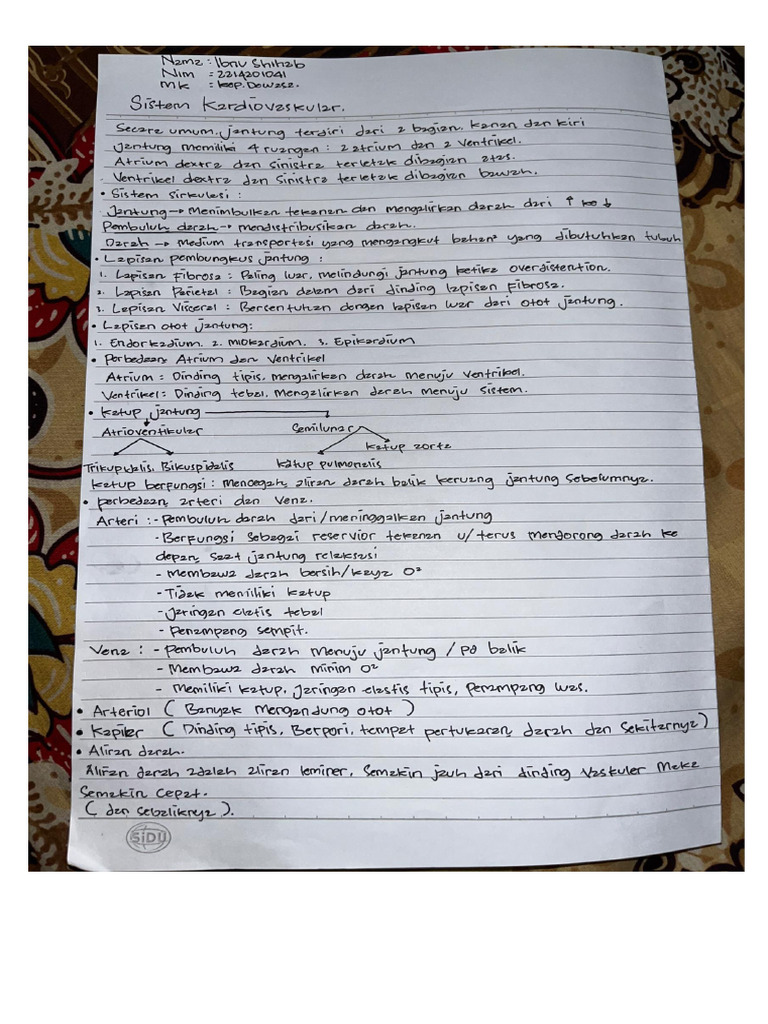 Nama : Ibnu Shihab
Nim : 2214201041
MK : Kep. Dewasa.
Sistem Kardiovaskular.
Secara umum, jantung terdiri dari 2 bagian, kanan dan kiri
jantung memiliki 4 ruangan : 2 atrium dan 2 ventrikel.
Atrium dextra dan sinistra terletak dibagian atas.
Ventrikel dextra dan sinistra terletak dibagian bawah.
• Sistem sirkulasi :
Jantung → Menimbulkan tekanan dan mengalirkan darah dari ↑ ke ↓
Pembuluh darah → mendistribusikan darah.
Darah → medium transportasi yang mengangkut bahan² yang dibutuhkan tubuh
• Lapisan pembungkus jantung :
1. Lapisan Fibrosa : Paling luar, melindungi jantung ketika overdistention.
2. Lapisan Parietal : Bagian dalam dari dinding lapisan fibrosa.
3. Lapisan Visceral : Bersentuhan dengan lapisan luar dari otot jantung.
• Lapisan otot jantung:
1. Endorkadium. 2. miokardium. 3. Epikardium
• Perbedaan Atrium dan Ventrikel
Atrium : Dinding tipis, mengalirkan darah menuju ventrikel.
Ventrikel : Dinding tebal, Mengalirkan darah menuju sistem.
• Katup jantung
Atrioventikular Semilunar
Katup aorta
Trikupidalis, Bikuspidalis Katup pulmonalis
Katup berfungsi : mencegah aliran darah balik keruang jantung sebelumnya.
• perbedaan arteri dan Vena.
Arteri : - Pembuluh darah dari/meninggalkan jantung
- Berfungsi sebagai reservior tekanan u/ terus mendorong darah ke
depan, saat jantung relaksasi
- Membawa darah bersih/kaya O²
- Tidak memiliki katup
- jaringan elastis tebal
- Penampang sempit.
Vena : - Pembuluh darah menuju jantung / PD balik
- Membawa darah minim O²
- Memiliki katup, jaringan elastis tipis, penampang luas.
• Arteriol ( Banyak mengandung otot )
• Kapiler ( Dinding tipis, Berpori, tempat pertukaran darah dan sekitarnya )
• Aliran darah.
Aliran darah adalah aliran laminer, semakin jauh dari dinding vaskuler maka
semakin cepat.
( dan sebaliknya ).
SIDU